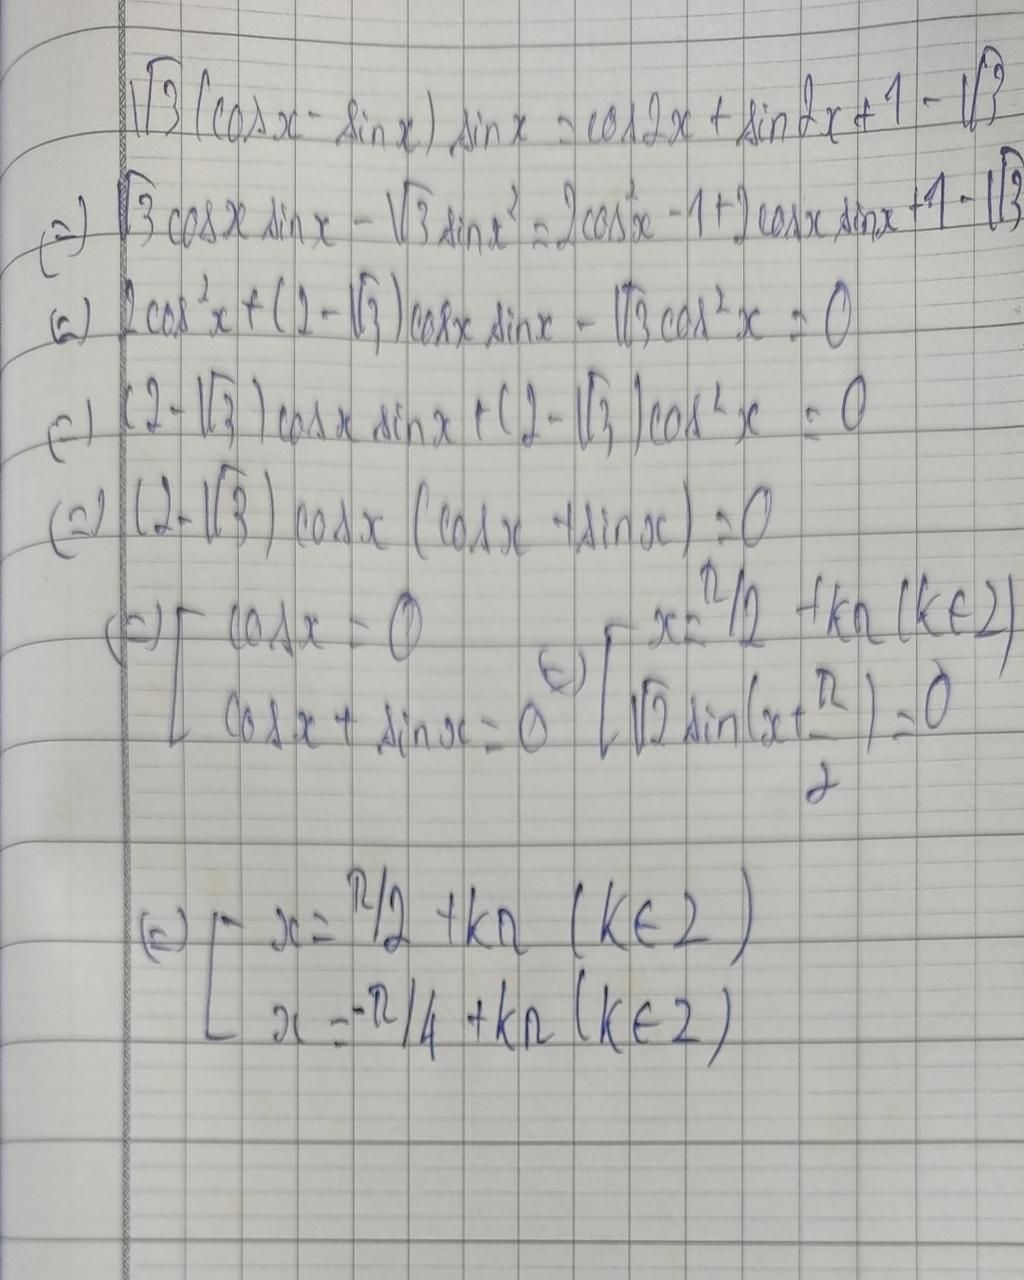 √3(cosx - sinx) sinx = cos2x + sin2x + 1 - √3
(=) √3 cosx sinx - √3 sinx² = 2cos²x - 1 + 2cosx sinx + 1 - √3
(=) 2cos²x + (2-√3)cosx sinx - √3 cos²x = 0
(=) (2-√3)cosx sinx + (2-√3)cos²x = 0
(=) (2-√3) cosx (cosx + sinx) = 0
(=) [ cosx = 0 (=) [ x = π/2 + kπ (k∈Z)
cosx + sinx = 0 √2 sin(x + π/2) = 0
(=) [ x = π/2 + kπ (k∈Z)
x = -π/4 + kπ (k∈Z)